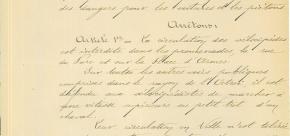 des dangers pour les voitures et les piétons
Arrêtons:
Article 1er La circulation des vélocipèdes
est interdite dans les promenades, la rue
du Parc et sur la Place d'Armes.
Sur toutes les autres voies publiques
comprises dans le rayon de l'Octroi, il est
défendu aux vélocipédistes de marcher à
une vitesse supérieure au petit trot d'un
cheval.
Leur circulation en Ville n'est tolérée